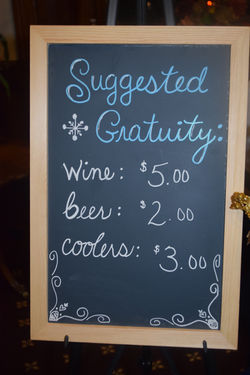 Suggested
Gratuity:
wine: $5.00
beer: $2.00
coolers: $3.00